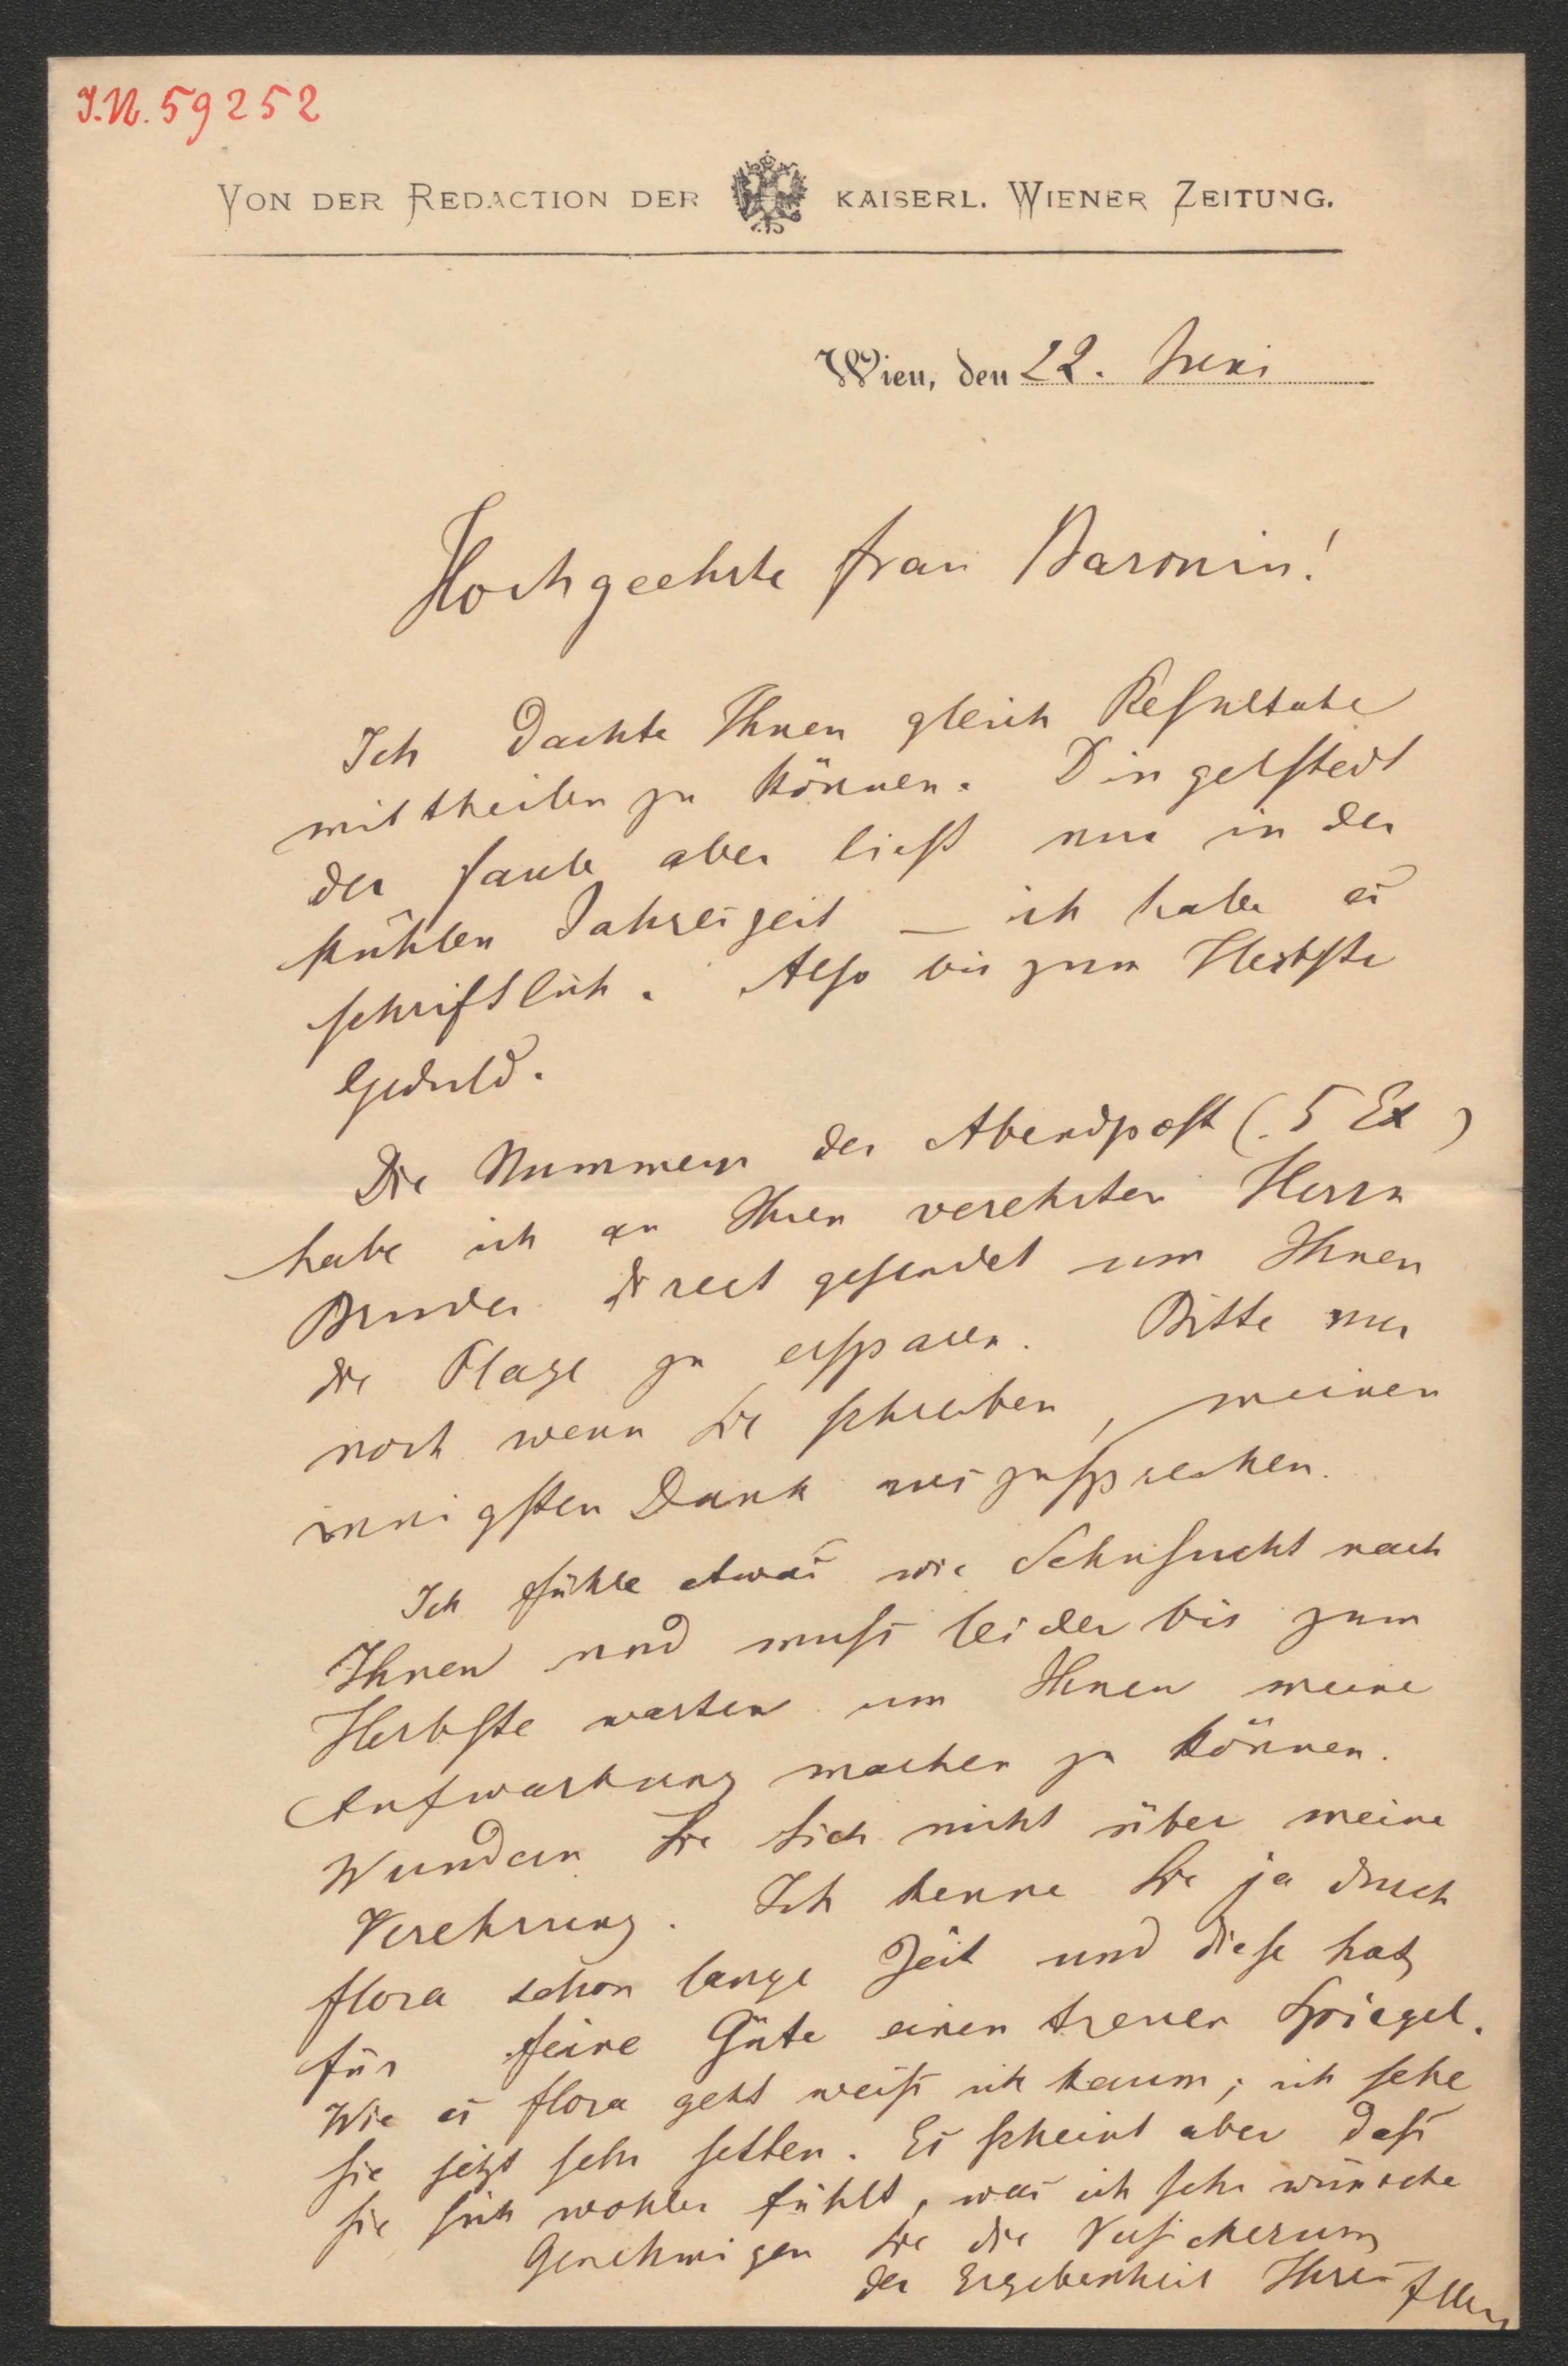 I.N. 59252
VON DER REDACTION DER KAISERL. WIENER ZEITUNG.
Wien, den 22. Juni
Hochgeehrte Frau Baronin!
Ich dachte Ihnen gleich Resultate
mittheilen zu können. Dingelstedt
der faule aber liest nur in der
kühlen Jahreszeit — ich habe es
schriftlich. Also bis zum Herbste
Geduld.
Die Nummern der Abendpost (5 Ex)
habe ich an Ihren verehrten Herrn
Bruder direct gesendet um Ihnen
die Plage zu ersparen. Bitte nur
noch wenn Sie schreiben, meinen
innigsten Dank auszusprechen.
Ich fühle etwas wie Sehnsucht nach
Ihnen und muss leider bis zum
Herbste warten um Ihnen meine
Aufwartung machen zu können.
Wundern Sie sich nicht über meine
Verehrung. Ich kenne Sie ja durch
Flora schon lange Zeit und diese hat
für feine Güte einen treuen Spiegel.
Wie es Flora geht weiß ich kaum; ich sehe
sie jetzt sehr selten. Es scheint aber daß
sie sich wohler fühlt, was ich sehr wünsche
Genehmigen Sie die Versicherung
der Ergebenheit Ihres